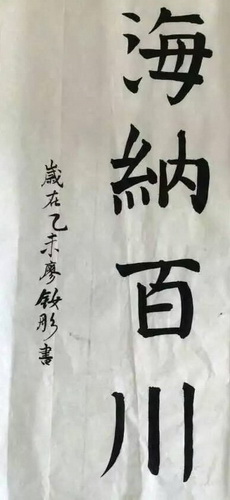 海納百川
歲在乙未廖釹彤書